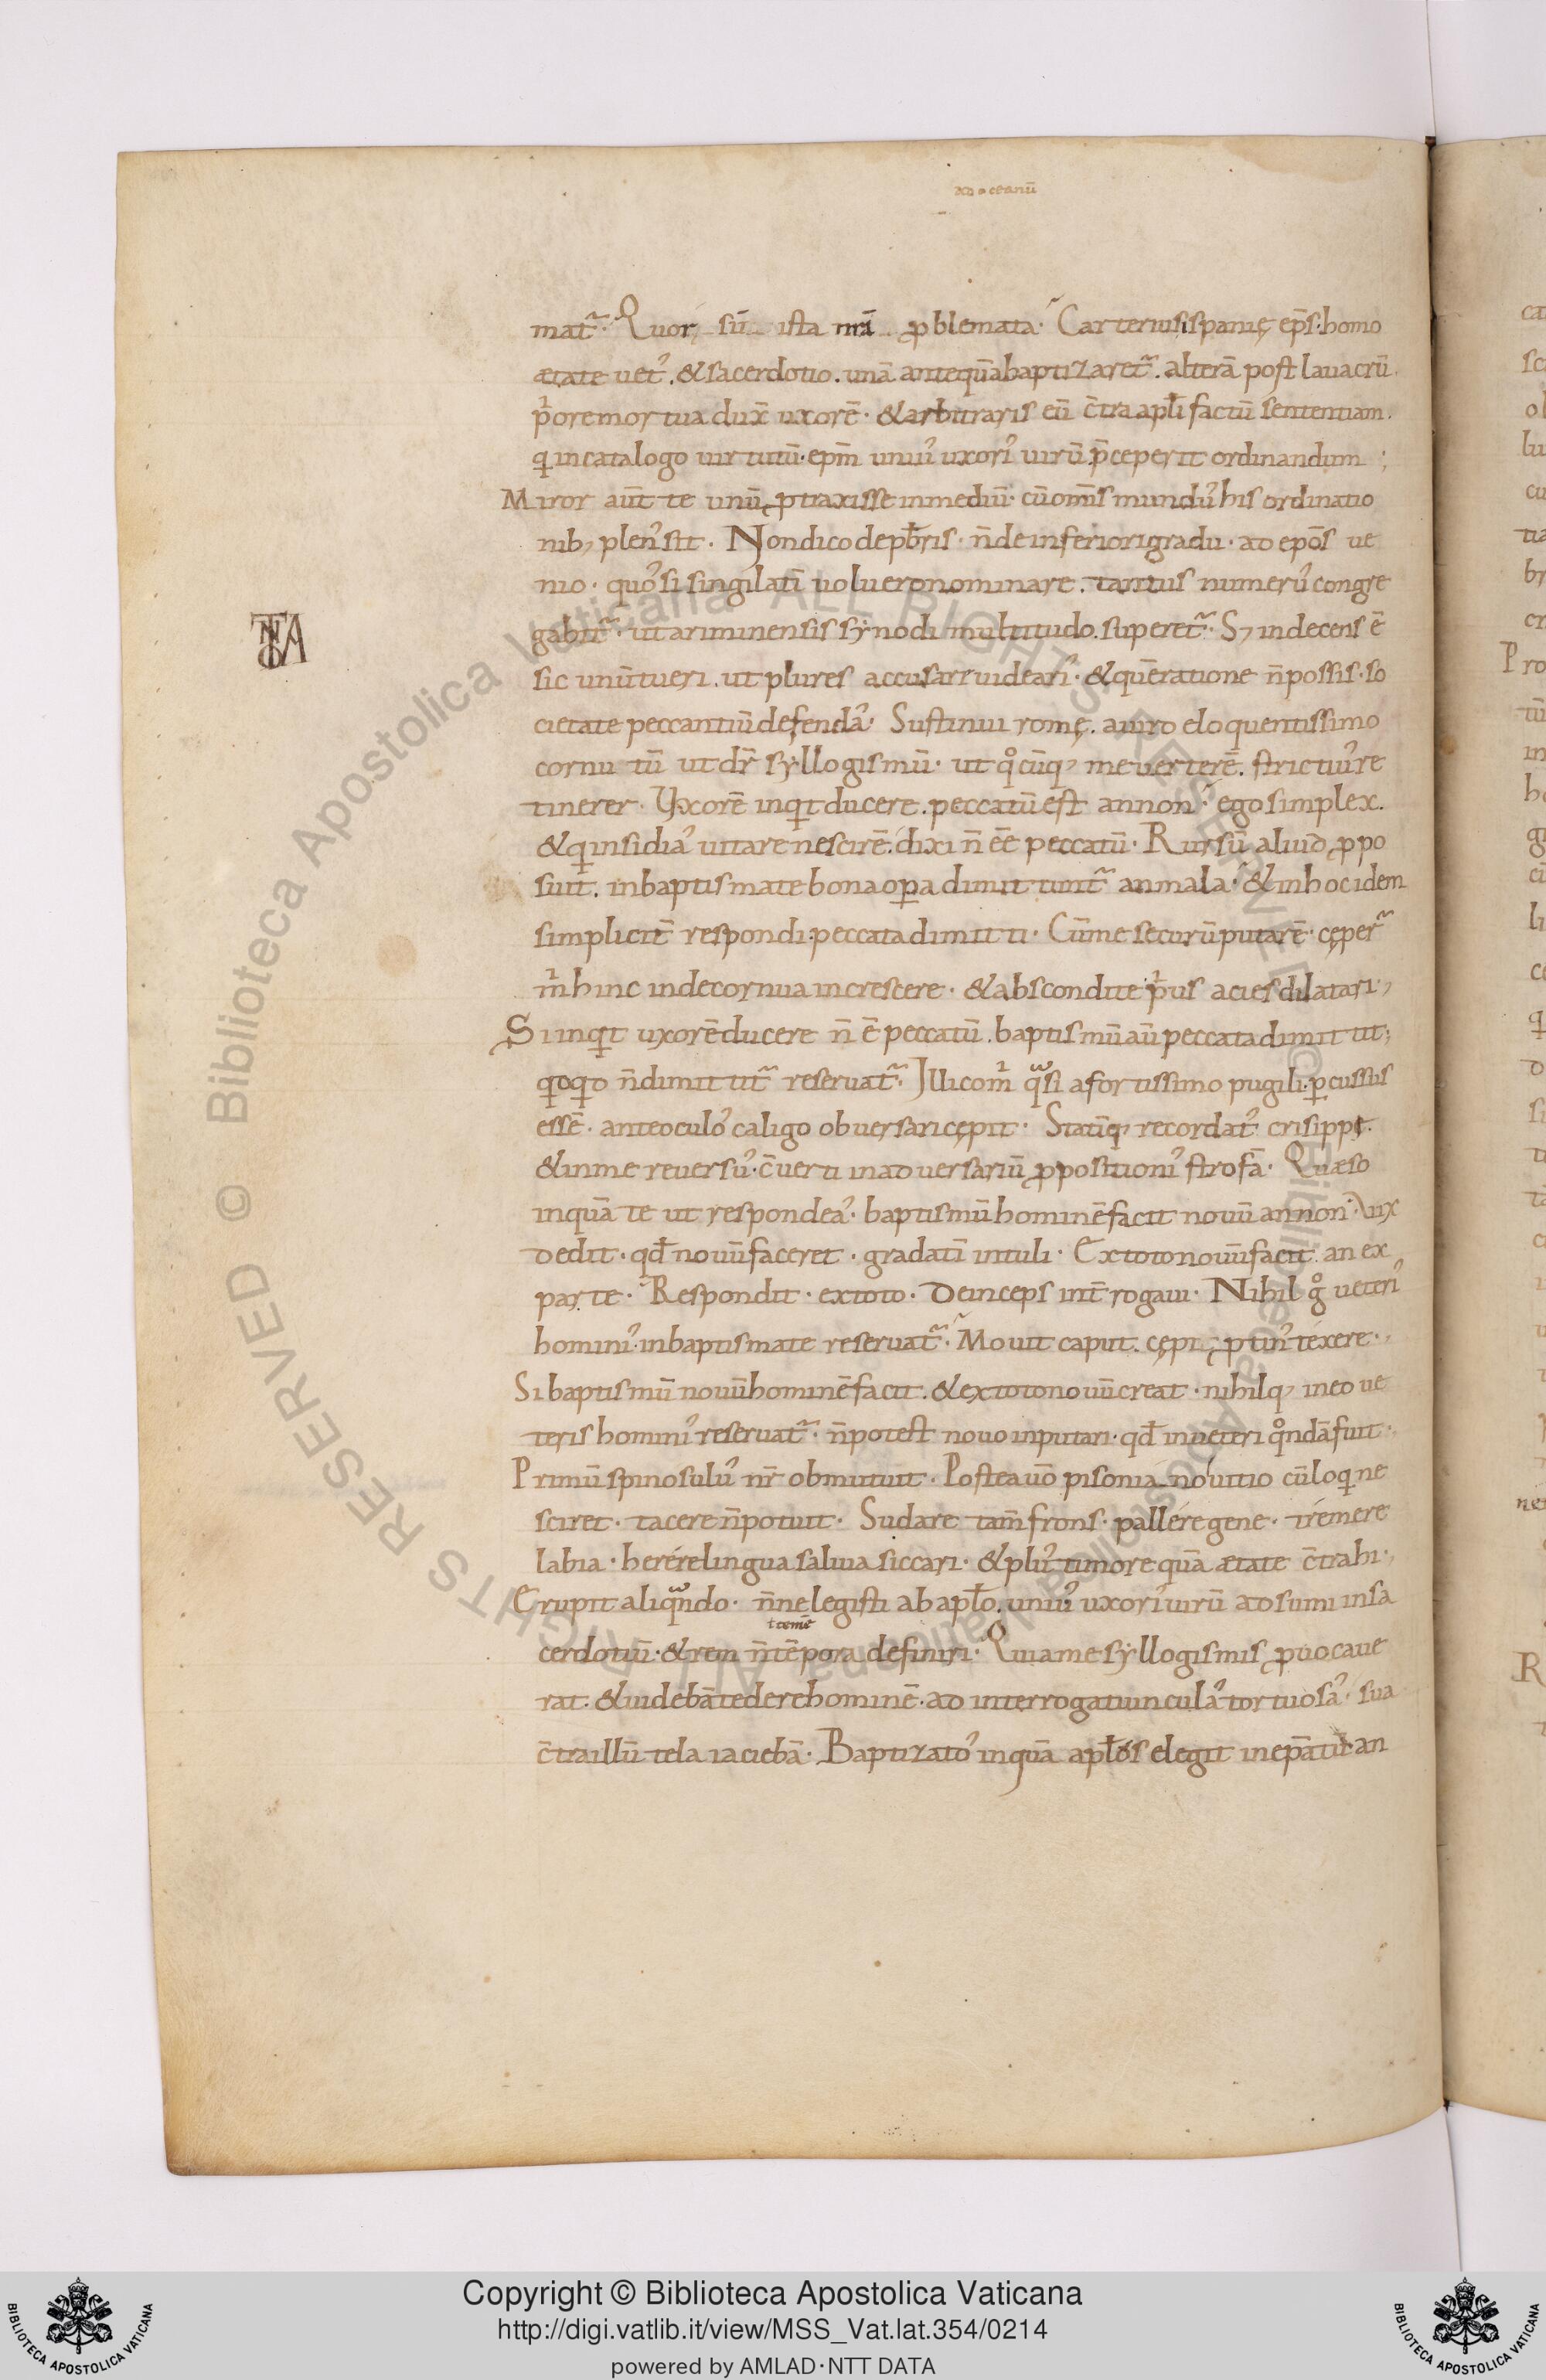 ad oceanū
mat᷑. Quor sū ista nr̄i ꝓblemata. Carterius ispanię ep̄s. homo
ætate uet᾿. & sacerdotio. unā antequā baptizaret᷑. alterā post lauacrū.
p̓ore mortua dux̄ uxorē. & arbitraris eū c̄tra apl̄i factū sententiam.
q̓ in catalogo uirtutū. ep̄m uniu᾿ uxori᾿ uirū p̄ceperit ordinandum;
Miror aūt te unū ꝓtraxisse in mediū. cū om̄is mundu᾿ his ordinatio
nib; plen᾿ sit. Non dico de pb̄ris. n̄ de inferiori gradu. ad ep̄os ue
nio. quo᾿ si singilatī uoluero nominare. tantus numeru᾿ congre
gabit᷑. ut ariminensis synodi multitudo superet᷑. S; indecens ē
sic unū tueri. ut plures accusare uideari᾿. & quē ratione n̄ possis. so
cietate peccantiū defenda᾿. Sustinui romę. a uiro eloquentissimo
cornutū ut dr̄ syllogismū. ut q̊cūq; me uerterē. strictiu᾿ re
tinerer. Uxorē inq̓t ducere. peccatū est an non. ego simplex.
& q̓ insidia᾿ uitare nescirē. dixi n̄ ēē peccatū. Rursū aliud ꝓpo
suit. in baptismate bona oꝑa dimittunt᷑ an mala. & in hoc idem
simplicit̄ respondi. peccata dimitti. Cū me securū putarē. cęper᷑
m̓ hinc inde cornua increscere. & abscondite p̓us acies dilatari;
Si inq̓t uxorē ducere n̄ ē peccatū. baptismū aū peccata dimittit;
q̓dq̓d n̄ dimittit᷑ reseruat᷑. Ilico m̓ qᷓsi a fortissimo pugili ꝑcussus
essē. ante oculo᾿ caligo obuersari cępit. Statīq; recordat᾿ crisippi.
& in me reuersu᾿. c̄uerti in aduersariū ꝓpositioni᾿ strofā. Quæso
inquā te ut respondea᾿. baptismū hominē facit nouū an non. Vix
dedit. qd̄ nouū faceret. gradatī intuli. Ex toto nouū facit. an ex
parte. Respondit. ex toto. Deinceps int̄rogaui. Nihil g̊ ueteri᾿
homini᾿ in baptismate reseruat᷑. Mouit caput. cępi ꝓtin᾿ téxere.
Si baptismū nouū hominē facit. & ex toto nouū creat. nihilq; in eo ue
teris homini᾿ reseruat᷑. n̄ potest nouo inputari. qd̄ in ueteri q̊ndā fuit.
Primū spinosulu᾿ nr̄ obmutuit. Postea uō pisoniano uitio cū loq̓ ne
sciret. tacere n̄ potuit. Sudare tam̄ frons. pallére gene. trémere
labia. herére lingua saliua siccari. & plu᾿ timore quā ætate c̄trahi.
Erupit aliqᷓndo. n̄ne legisti ab apl̄o. uniu᾿ uxori᾿ uirū adsumi in sa
cerdotiū. & rem n̄ tēpora definiri. Quia me syllogismis ꝓuocaue
rat. & uidebā tedere hominē. ad interrogatiuncula᾿ tortuosa᾿. sua
c̄tra illū tela iaciebā. Baptizato᾿ inquā apl̄os elegit in ep̄atū an
Copyright © Biblioteca Apostolica Vaticana
http://digi.vatlib.it/view/MSS_Vat.lat.354/0214
powered by AMLAD·NTT DATA
BIBLIOTECA APOSTOLICA VATICANA
BIBLIOTECA APOSTOLICA VATICANA